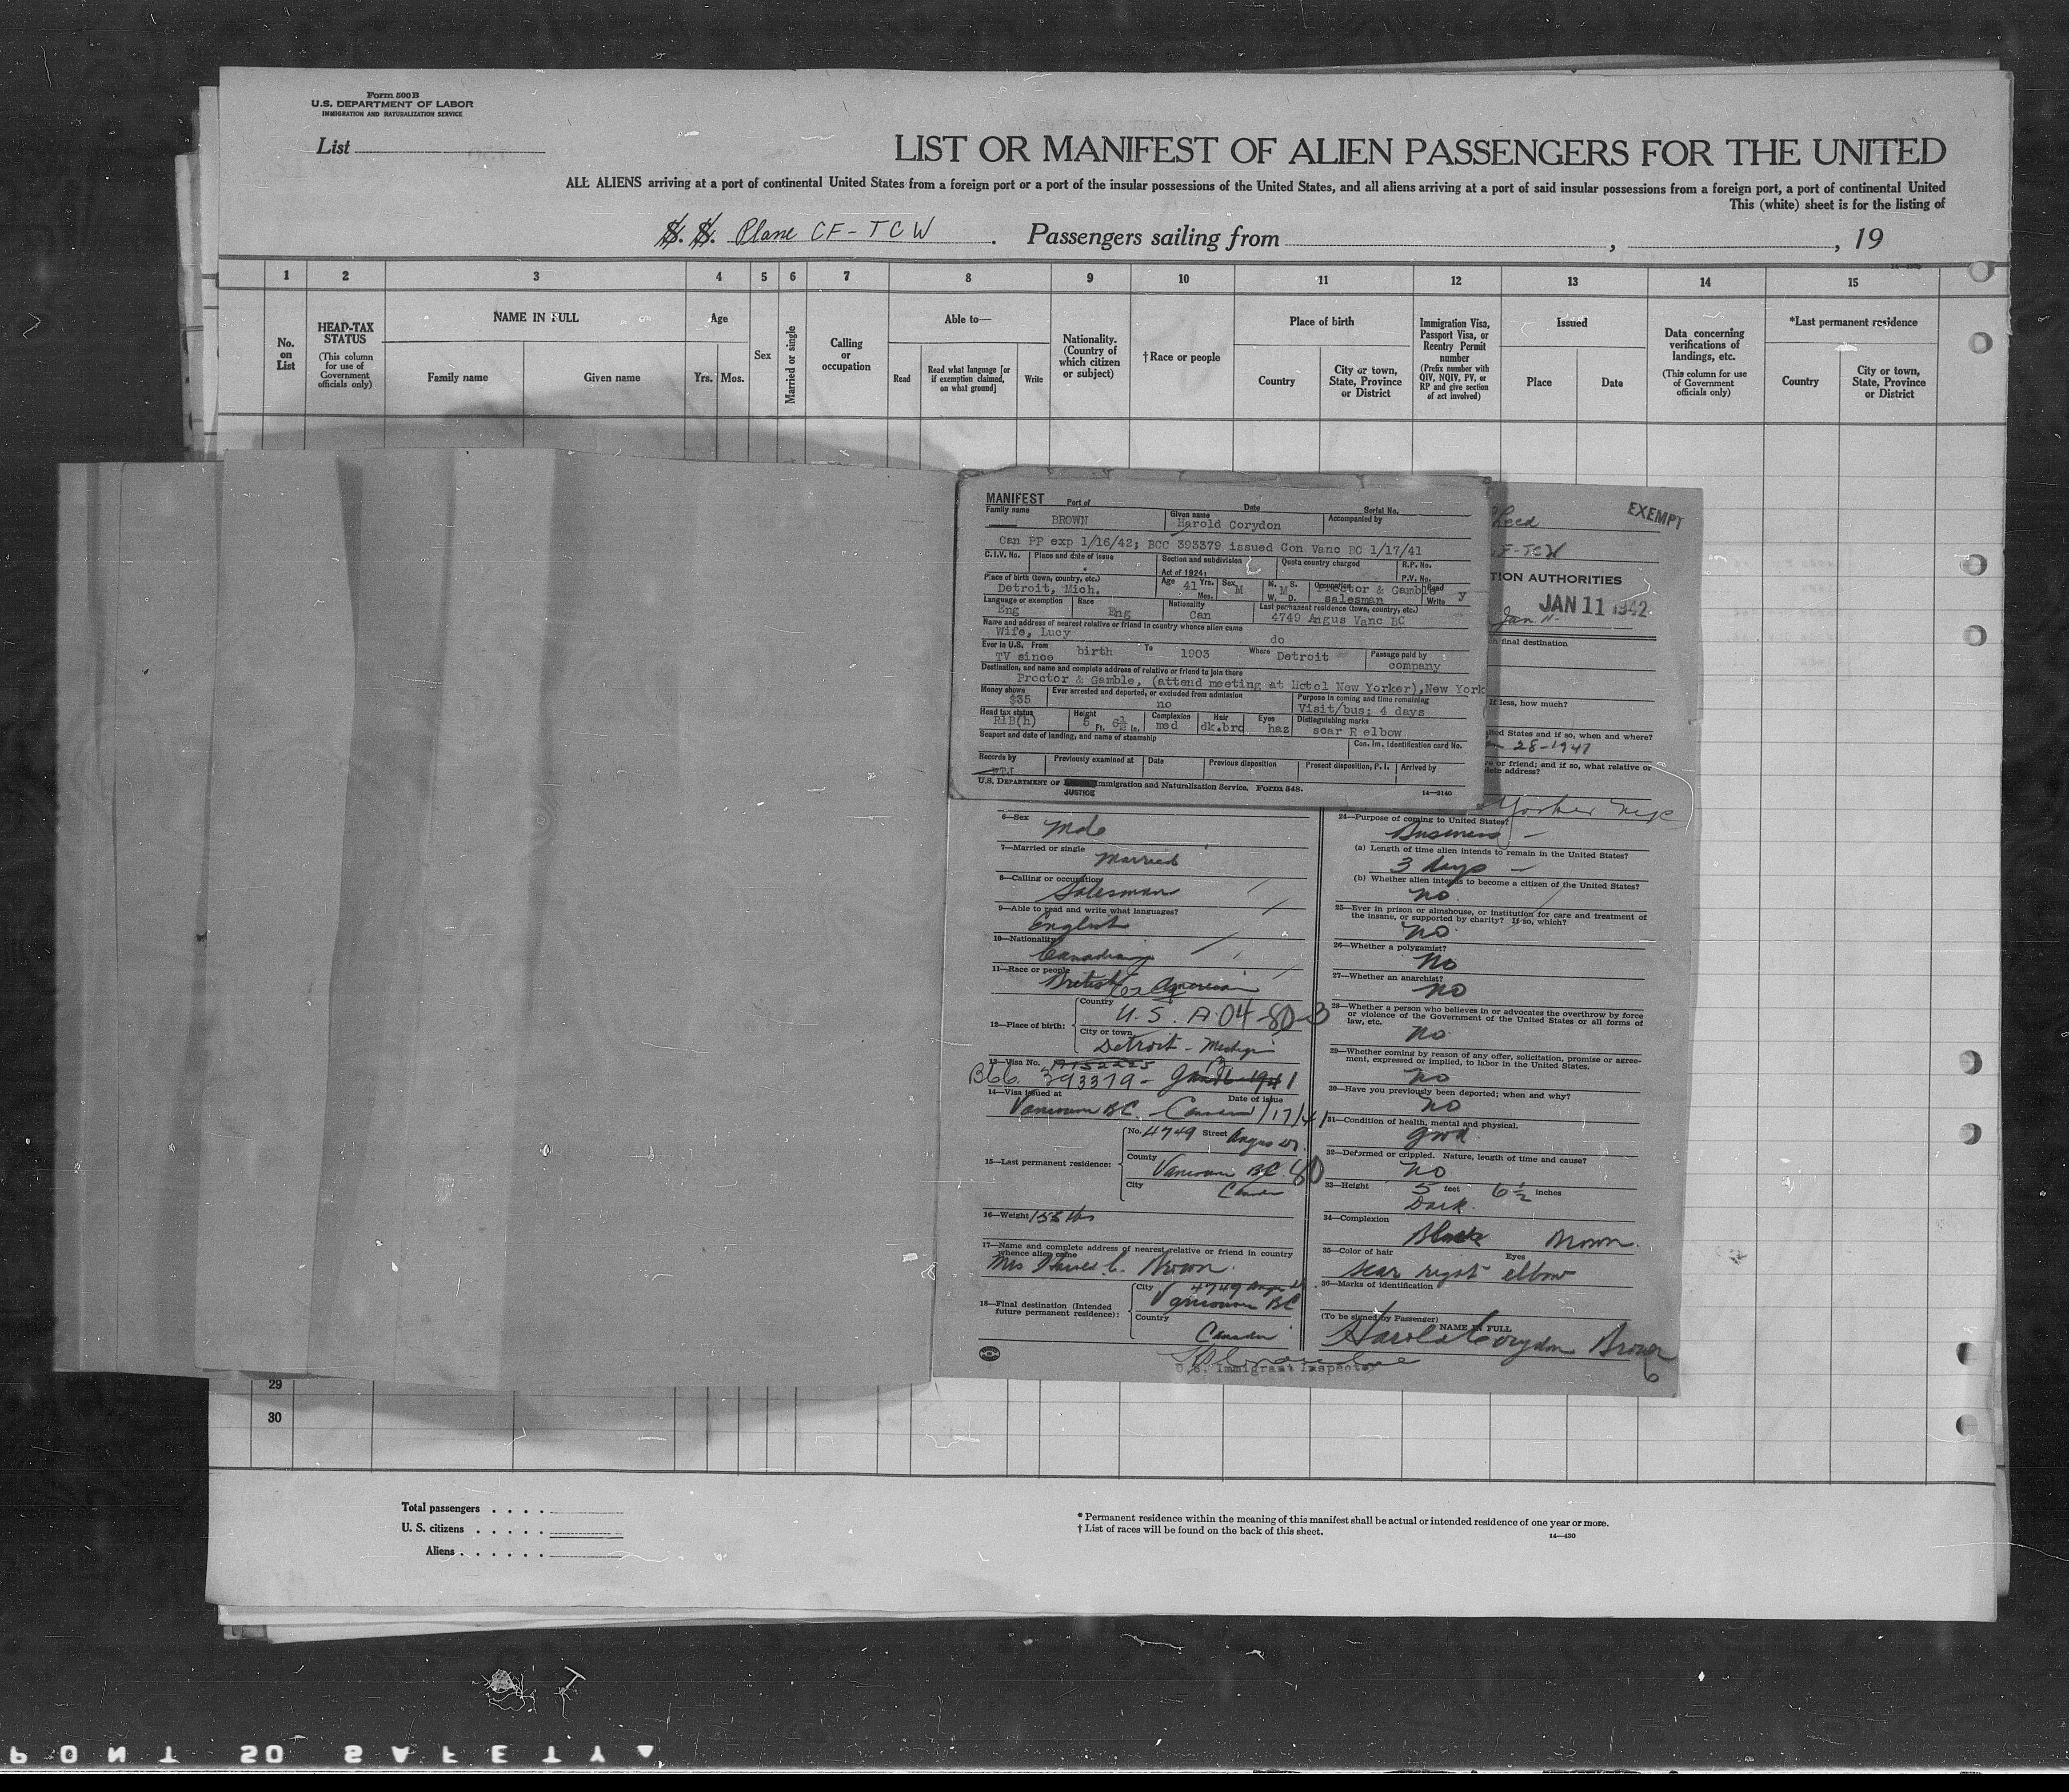 Form 500 B
U.S. DEPARTMENT OF LABOR
IMMIGRATION AND NATURALIZATION SERVICE
List
LIST OR MANIFEST OF ALIEN PASSENGERS FOR THE UNITED
ALL ALIENS arriving at a port of continental United States from a foreign port or a port of the insular possessions of the United States, and all aliens arriving at a port of said insular possessions from a foreign port, a port of continental United
This (white) sheet is for the listing of
S. S. Plane CF-TCW . Passengers sailing from , , 19
1 2 3 4 5 6 7 8 9 10 11 12 13 14 15
No. on List
HEAD-TAX STATUS (This column for use of Government officials only)
NAME IN FULL
Family name Given name
Age
Yrs. Mos.
Sex
Married or single
Calling or occupation
Able to—
Read Read what language [or if exemption claimed, on what ground] Write
Nationality. (Country of which citizen or subject)
† Race or people
Place of birth
Country City or town, State, Province or District
Immigration Visa, Passport Visa, or Reentry Permit number (Prefix number with QIV, NQIV, PV, or RP and give section of act involved)
Issued
Place Date
Data concerning verifications of landings, etc. (This column for use of Government officials only)
*Last permanent residence
Country City or town, State, Province or District
MANIFEST Port of Date Serial No.
Family name Given name Accompanied by
BROWN Harold Corydon
Can PP exp 1/16/42; BCC 393379 issued Con Vanc BC 1/17/41
C.I.V. No. Place and date of issue Section and subdivision Quota country charged R.P. No.
Act of 1924: P.V. No.
Place of birth (town, country, etc.) Age Yrs. Mos. Sex M. S. W. D. Occupation Read Write
Detroit, Mich. 41 M M Proctor & Gamble salesman y
Language or exemption Race Nationality Last permanent residence (town, country, etc.)
Eng Eng Can 4749 Angus Vanc BC
Name and address of nearest relative or friend in country whence alien came
Wife, Lucy do
Ever in U.S. From To Where Passage paid by
TV since birth 1903 Detroit company
Destination, and name and complete address of relative or friend to join there
Proctor & Gamble, (attend meeting at Hotel New Yorker), New York
Money shown Ever arrested and deported, or excluded from admission Purpose in coming and time remaining
$35 no Visit/bus; 4 days
Head tax status Height Complexion Hair Eyes Distinguishing marks
R1B(h) 5 Ft. 6½ in. med dk.brd haz scar R elbow
Seaport and date of landing, and name of steamship Con. Im. Identification card No.
Records by Previously examined at Date Previous disposition Present disposition, P.I. Arrived by
U.S. DEPARTMENT OF JUSTICE Immigration and Naturalization Service. Form 548. 14—2140
EXEMPT
F-TCW
TION AUTHORITIES
JAN 11 1942
Jan 11
n final destination
If less, how much?
ited States and if so, when and where?
28-1941
ve or friend; and if so, what relative or
lete address?
Yorker
6—Sex
Male
7—Married or single
Married
8—Calling or occupation
Salesman
9—Able to read and write what languages?
English
10—Nationality
Canadian
11—Race or people
British American
12—Place of birth: Country
U. S. A. 04-80-3
City or town
Detroit - Michigan
13—Visa No.
393379 -
14—Visa issued at Date of issue
Vancouver BC - Canada 1/17/41
15—Last permanent residence: No. 4749 Street Angus Dr.
County Vancouver BC. 80
City Canada
16—Weight 155 lbs
17—Name and complete address of nearest relative or friend in country whence alien came
Mrs Harold C. Brown.
18—Final destination (Intended future permanent residence): City 4749 Angus Dr.
Vancouver BC
Country
Canada
U.S. Immigrant Inspector
24—Purpose of coming to United States?
Business -
(a) Length of time alien intends to remain in the United States?
3 days -
(b) Whether alien intends to become a citizen of the United States?
no.
25—Ever in prison or almshouse, or institution for care and treatment of the insane, or supported by charity? If so, which?
no.
26—Whether a polygamist?
No
27—Whether an anarchist?
no
28—Whether a person who believes in or advocates the overthrow by force or violence of the Government of the United States or all forms of law, etc.
no.
29—Whether coming by reason of any offer, solicitation, promise or agreement, expressed or implied, to labor in the United States.
no
30—Have you previously been deported; when and why?
no
31—Condition of health, mental and physical.
good.
32—Deformed or crippled. Nature, length of time and cause?
no
33—Height 5 feet 6½ inches
Dark.
34—Complexion
Black Brown.
35—Color of hair Eyes
scar right elbow
36—Marks of identification
(To be signed by Passenger)
NAME IN FULL
Harold Corydon Brown
6
29
30
Total passengers . . . .
U. S. citizens . . . . .
Aliens . . . . . .
* Permanent residence within the meaning of this manifest shall be actual or intended residence of one year or more.
† List of races will be found on the back of this sheet. 14—430
PONT SO SAFETY